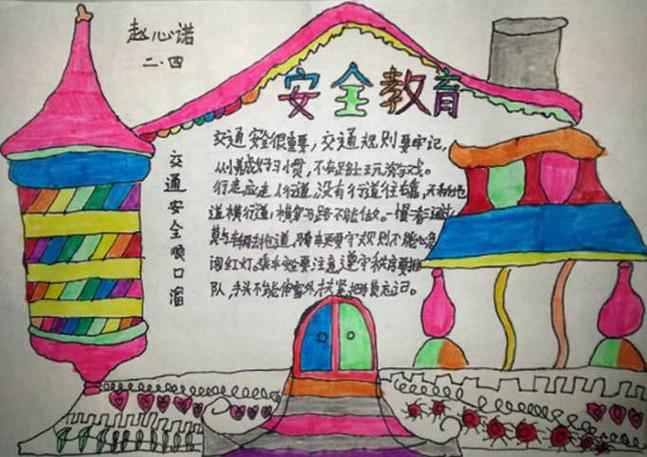 赵心诺
二.四
安全教育
交通安全顺口溜
交通安全很重要，交通规则要牢记，
从小养成好习惯，不在路上玩游戏。
行走应走人行道，没有行道往右靠，
道横行道，横穿马路不能做。一慢二看三通过，
莫与车辆去抢道，骑车更要守规则不能
闯红灯。乘车更要注意遵守秩序要排
队，手头不能伸窗外，扶紧把手莫忘记。